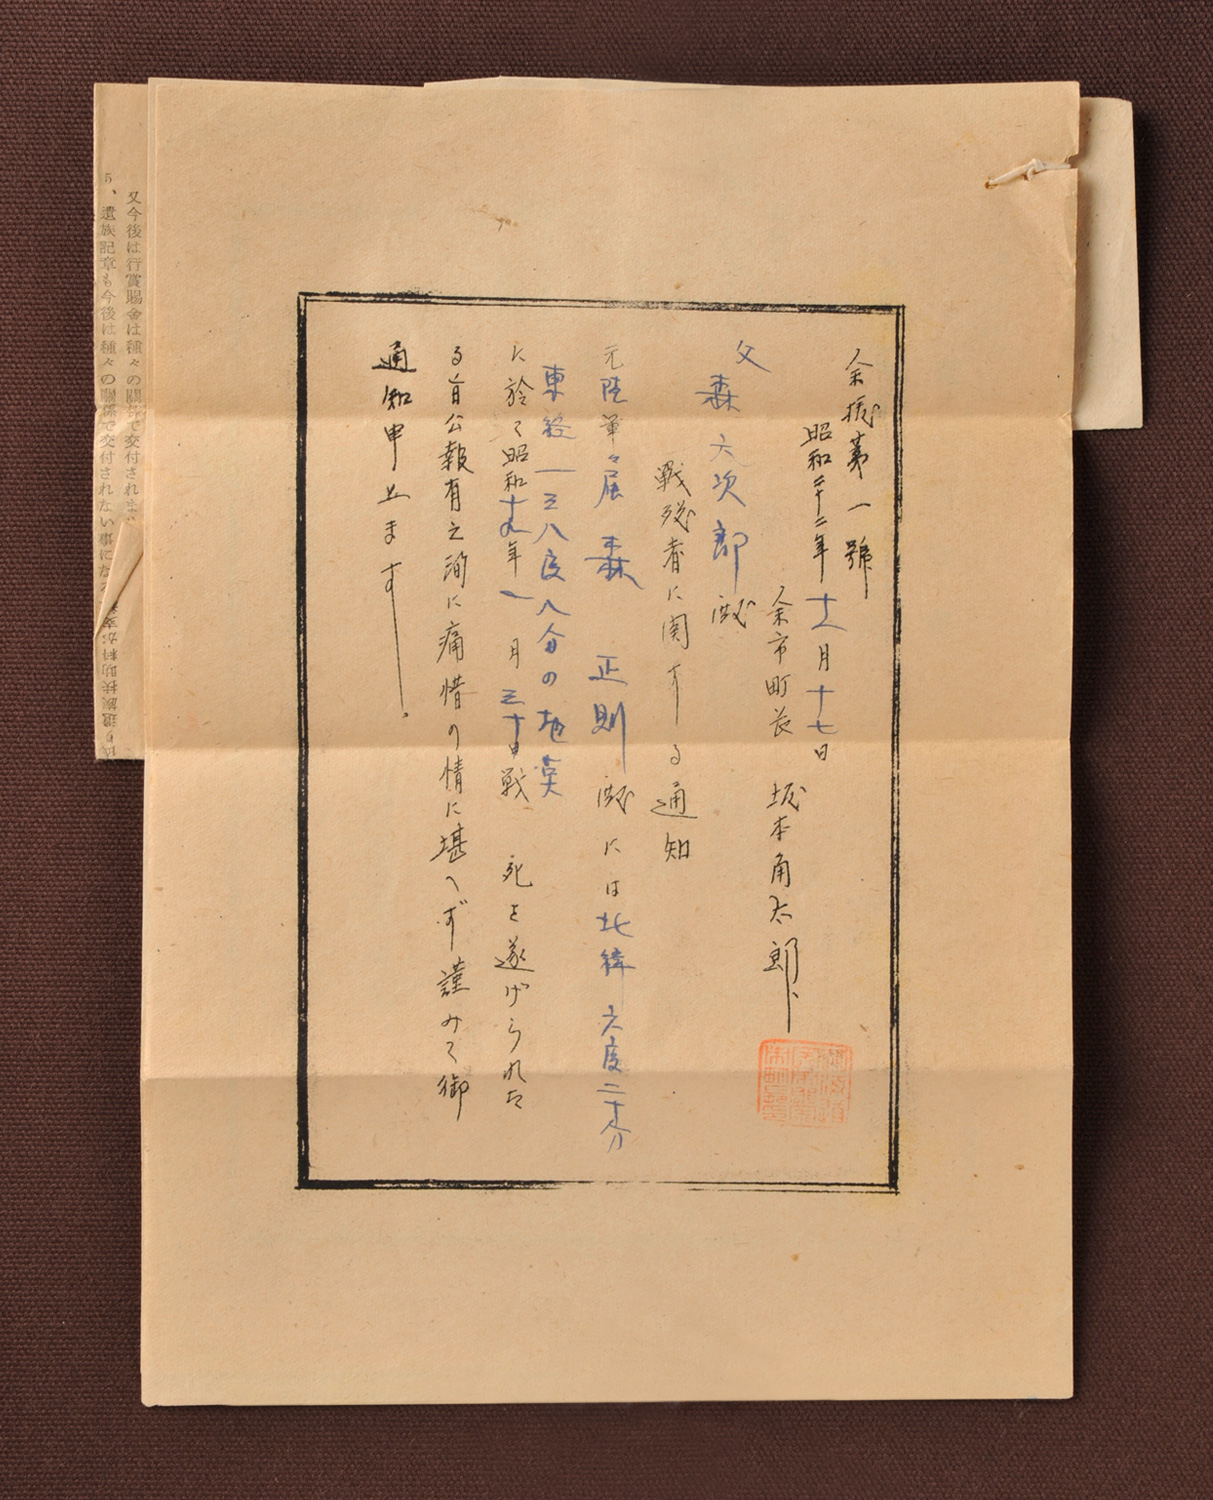 余援第一號
昭和二十二年十二月十七日
余市町長 坂本角太郎
父 森六次郎殿
戦歿者に関する通知
元陸軍々属 森 正則 殿には北緯六度二十分
東経一三八度八分の地点
に於て昭和十九年一月三十日戦死を遂げられた
る旨公報有之洵に痛惜の情に堪へず謹みて御
通知申上ます。
又今後は行賞賜金は種々の關係で交付されま
5、遺族記章も今後は種々の關係で交付されない事にな
遺族扶助料が